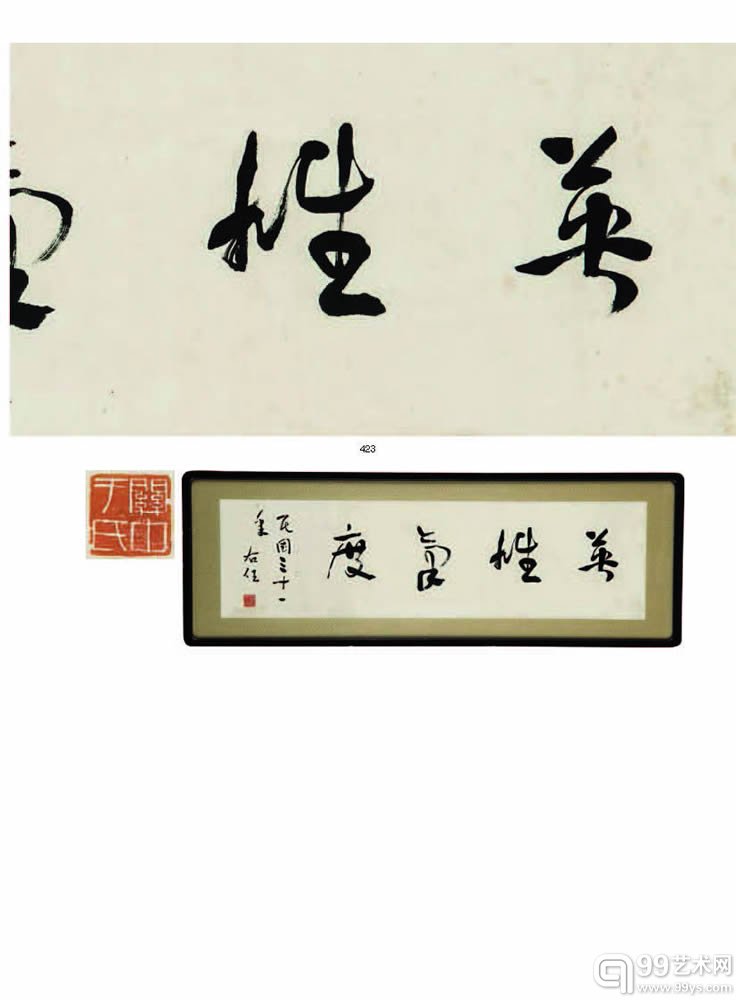 英雄氣度
423
關中于氏
英雄氣度
民國三十一
年 右任
99艺术网
www.99ys.com